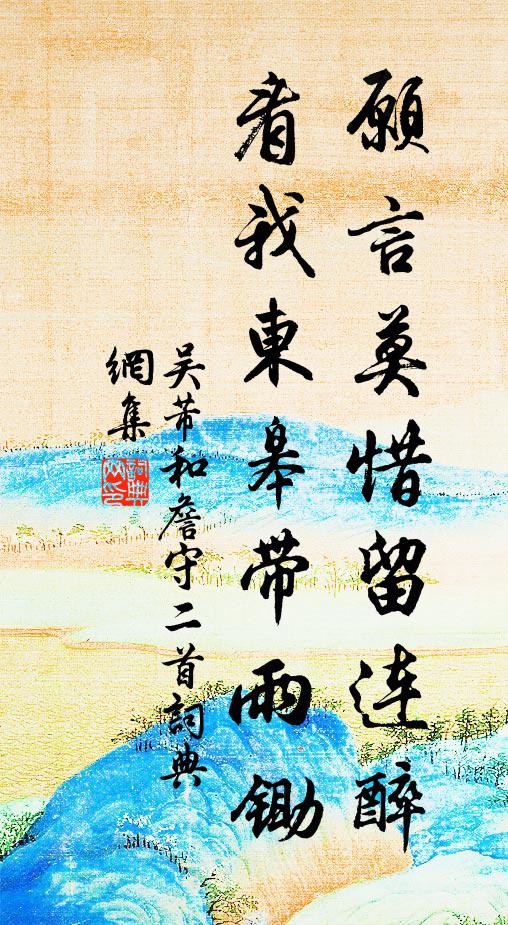 願言莫惜留连醉
看我東皋帶雨鋤
吴芾和詹守二首詞典
網集
詞典
网印